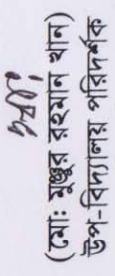 (মো: মুঞ্জুর রহমান খান)
উপ-বিদ্যালয় পরিদর্শক